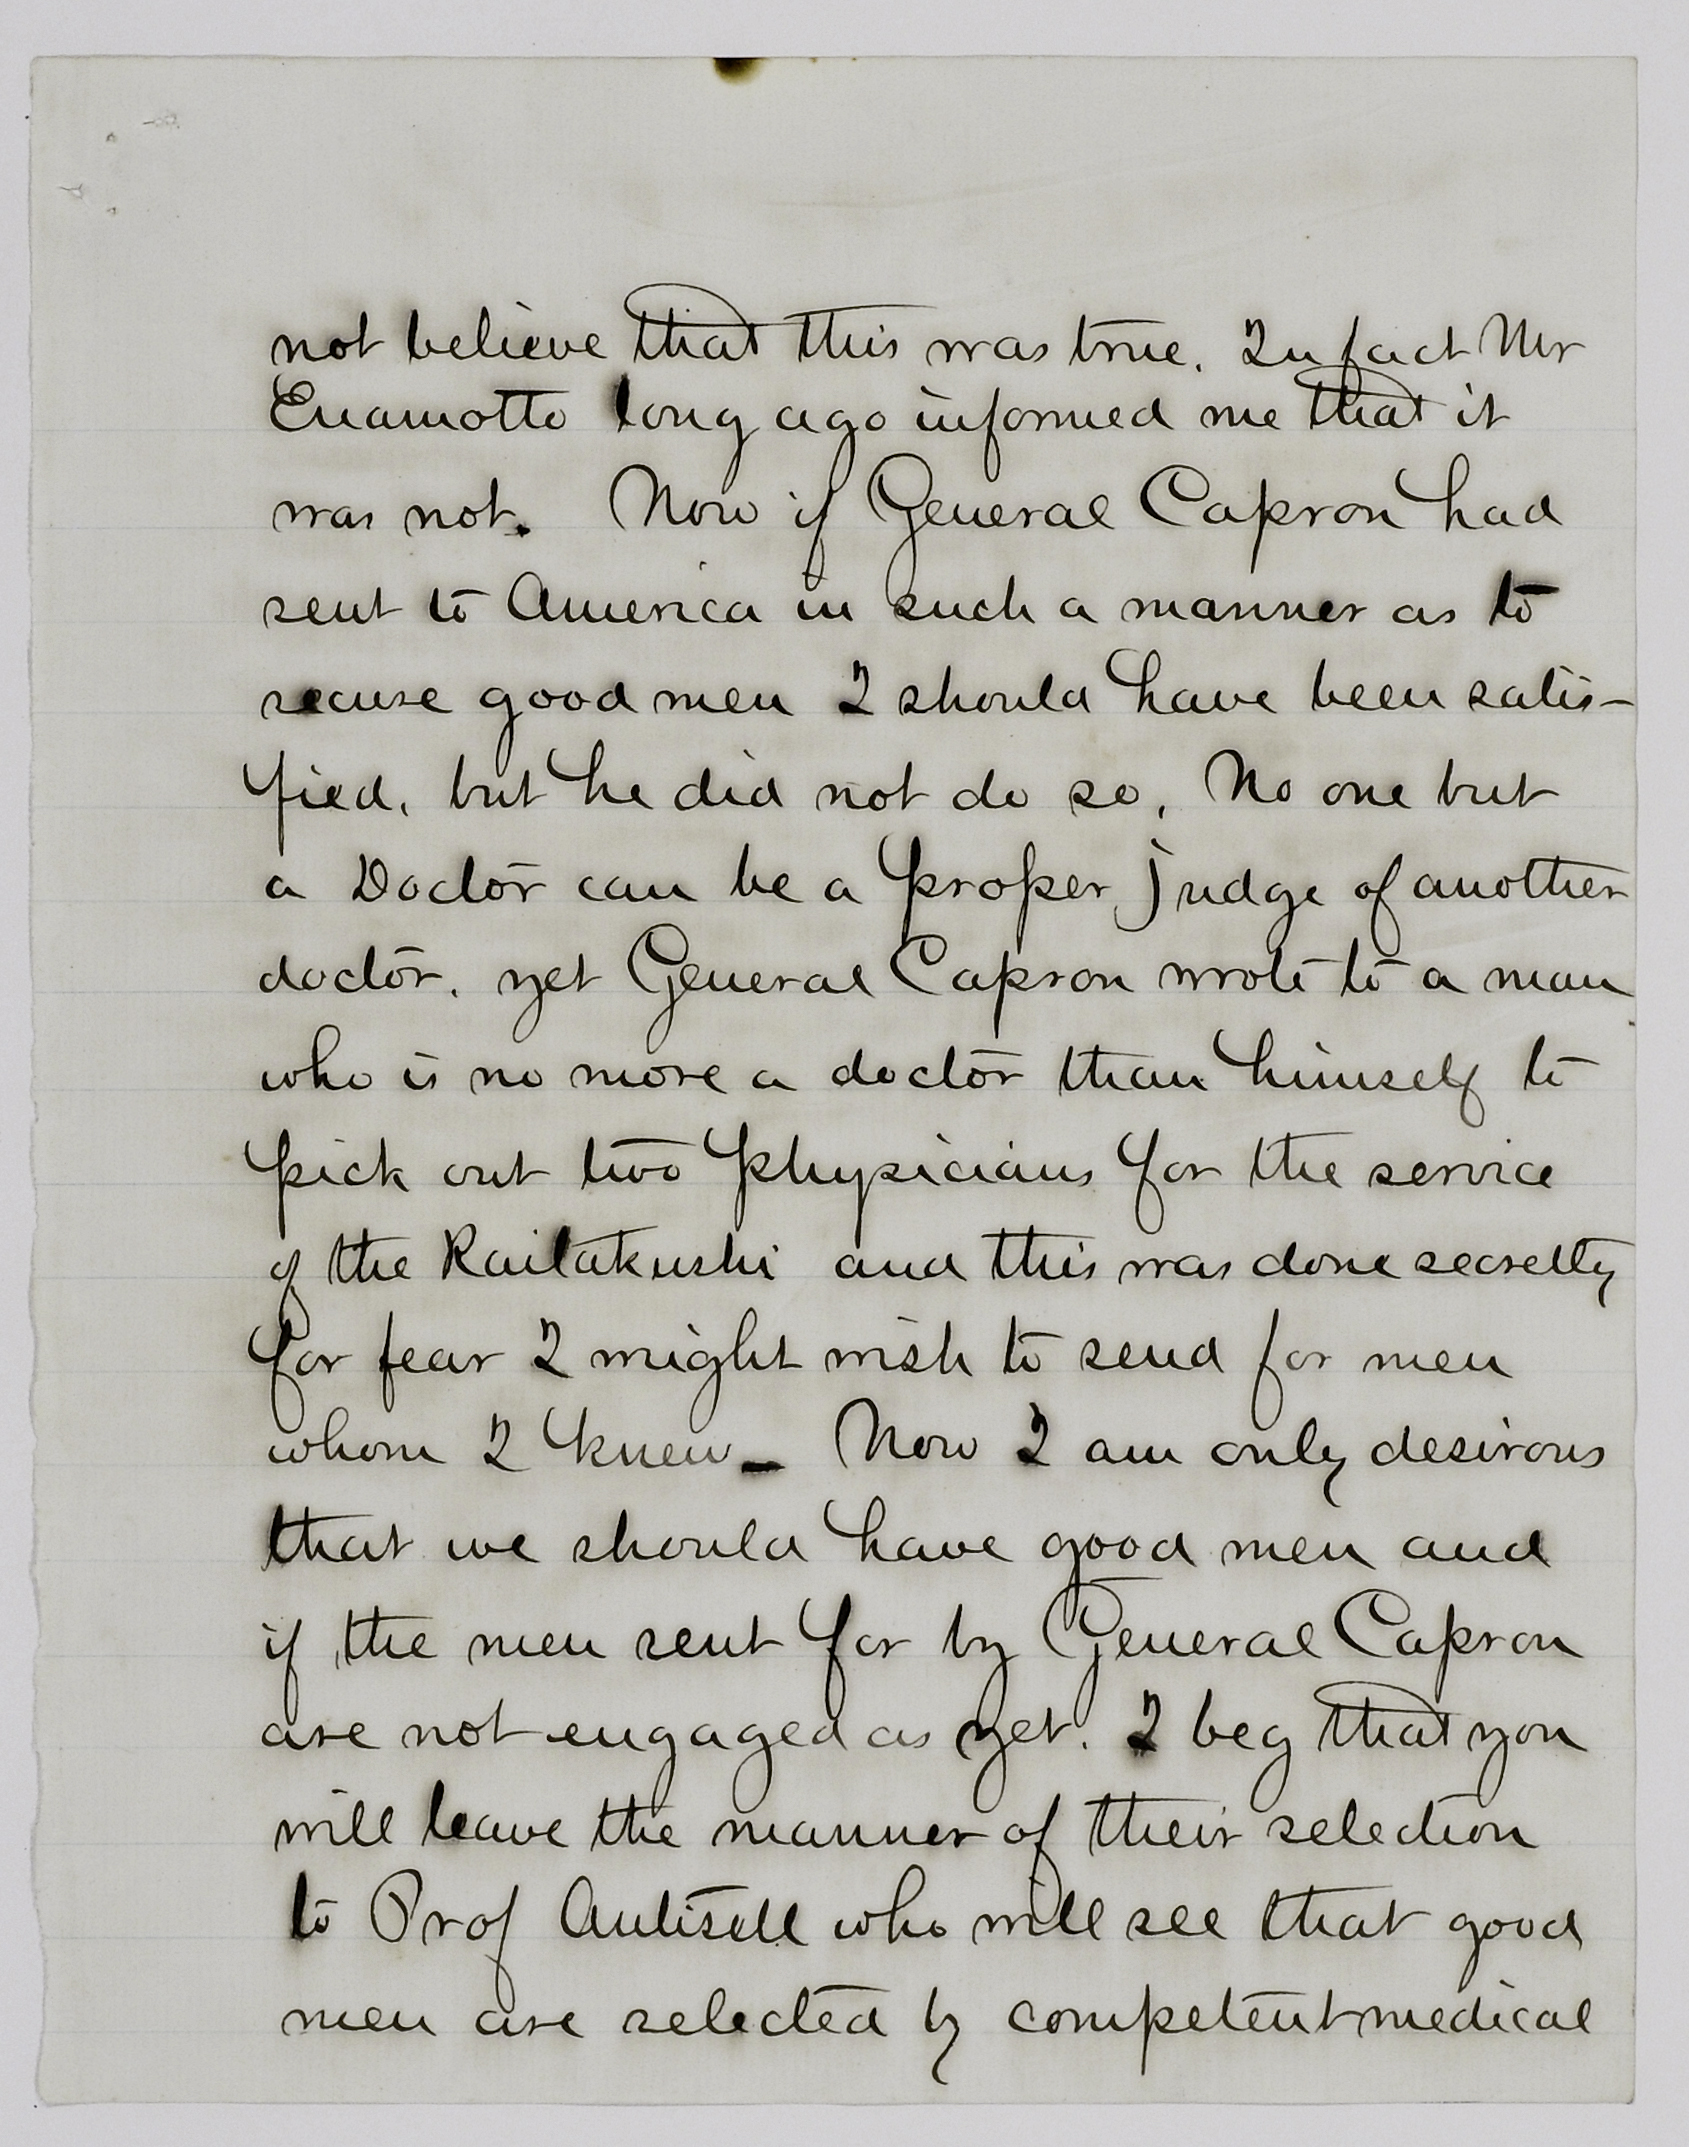 not believe that this was true. In fact Mr
Enamotto long ago informed me that it
was not. Now if General Capron had
sent to America in such a manner as to
secure good men I should have been satis-
fied, but he did not do so. No one but
a Doctor can be a proper judge of another
doctor. yet General Capron wrote to a man
who is no more a doctor than himself to
pick out two physicians for the service
of the Kaitakushi and this was done secretly
for fear I might wish to send for men
whom I knew - Now I am only desirous
that we should have good men and
if the men sent for by General Capron
are not engaged as yet. I beg that you
will leave the manner of their selection
to Prof Antisell who will see that good
men are selected by competent medical